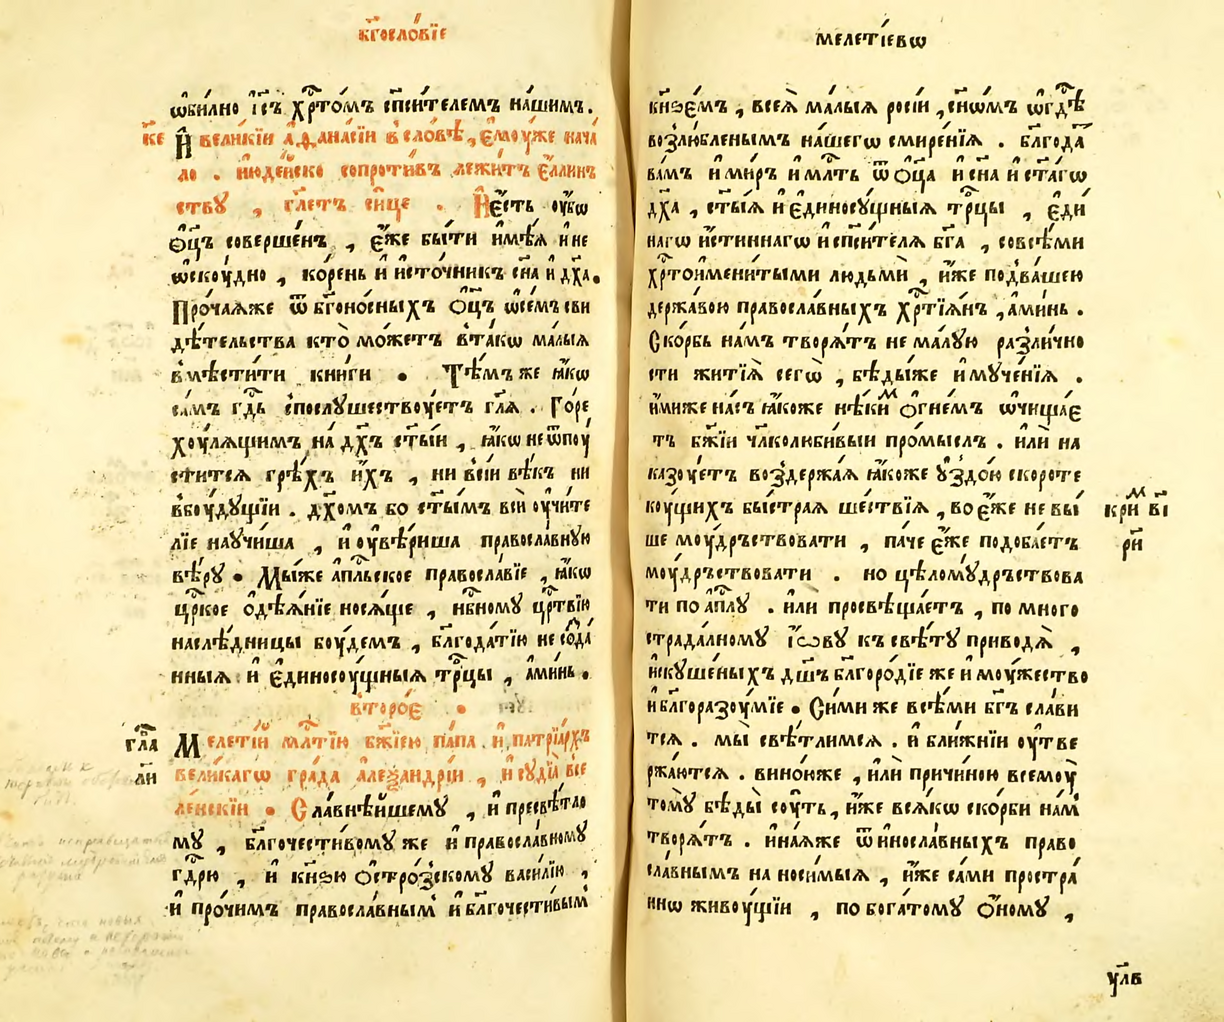 бг҃ослѻ́вїе
ѡ҆би́лно і҆с҃ъ хрⷭ҇то́мъ сп҃си́телемъ на́шимъ .
к҃е И҆ вели́кїи а҆ѳана́сїи в̾сло́вѣ , є҆моу́же нача́
ло . и҆юде́йско сопроти́въ лежи́тъ є҆́ллинъ
ствꙋ , гл҃етъ си́це . Не́сть оу҆́бѡ
ѻ҆ц҃ъ соверше́нъ , є҆́же бы́ти и҆мѣ́ѧ и҆ не
ѡ҆скоу́дно , ко́рень и҆ и҆сто́чникъ сн҃а и҆ дх҃а .
Про́чаѧже ѿ бг҃оно́сныхъ ѻ҆ц҃ъ ѡ҆се́мъ сви
дѣ́тельства кто̀ мо́жетъ в̾та́кѡ ма́лыѧ
вмѣсти́ти кни́ги . Тѣ́мъ же ꙗ҆́кѡ
са́мъ гдⷭ҇ь спослꙋ́шествоуетъ гл҃ѧ . Го́ре
хоу́лѧщимъ на́ дх҃ъ ст҃ы́и , ꙗ҆́кѡ не ѿпоу́
ститсѧ грѣ́хъ и҆́хъ , ни в̾сі́и вѣ́къ ни
в̾боу́дꙋщїи . дх҃омъ бо ст҃ы́мъ всѝ оу҆чи́те
лїе наꙋчи́ша , и҆ оу҆вѣ́риша правосла́внꙋю
вѣ́рꙋ . Мы́же а҆пⷭ҇льское правосла́вїе , ꙗ҆́кѡ
црⷭ҇кое ѻ҆дѣѧ́нїе носѧ́ще , нбⷭ҇номꙋ црⷭ҇твїю
наслѣ́дницы боу́демъ , бл҃года́тїю несо́зда
нныѧ и҆ є҆диносоу́щныѧ трⷪ҇цы , а҆ми́нь .
второ́є .
гл҃а
л҃и
Меле́тїй млⷭ҇тїю бж҃їею па́па и҆ патрїа́рхъ
вели́кагѡ гра́да а҆леѯандрі́и , и҆ сꙋдїа̀ все
ле́нскїи . Сла́внѣйшемꙋ , и҆ пресвѣ́тло
мꙋ , бл҃гочести́вомꙋ же и҆ правосла́вномꙋ
гдⷭ҇рю , и҆ кн҃ѕю Ѻ҆стро́зскомꙋ васи́лїю ,
и҆ про́чимъ правосла́вным и҆ бл҃гочести́вым
меле́тїевѡ
кнѕе́мъ , всеѧ̀ ма́лыѧ росі́и , сн҃ѡ́мъ ѡ҆ гдⷭ҇ѣ
возлю́бленымъ на́шегѡ смире́нїѧ . бл҃года́ⷮ
ва́мъ и҆ ми́ръ и҆ млⷭ҇ть ѿ ѻ҆ц҃а и҆ сн҃а и҆ ст҃а́гѡ
дх҃а , ст҃ы́ѧ и҆ є҆диносꙋ́щныѧ трⷪ҇цы , є҆ди́
нагѡ и҆́стиннагѡ и҆ сп҃си́телѧ бг҃а , совсѣ́ми
хрⷭ҇тоимени́тыми людьмѝ , и҆́же под̾ва́шею
держа́вою правосла́вныхъ хрⷭ҇тїѧ́нъ , а҆ми́нь .
Ско́рбь на́мъ творѧ́тъ не ма́лꙋю разли́чно
сти житїѧ̀ сегѡ̀ , бѣ́ды́же и҆ мꙋ́ченїѧ .
и҆́миже на́съ ꙗ҆́коже нѣ́киⷨ ѻ҆гне́мъ ѡ҆чища́є
тъ бж҃їи чл҃колиби́выи про́мыслъ . и҆лѝ на
казоу́етъ воздержа́ѧ ꙗ҆́коже ᲂу҆здо́ю скороте
коу́щихъ бы́страѧ ше́ствїѧ , во є҆́же не вы́
ше моу́дръствовати , па́че є҆́же подоба́етъ
кри́ⷨ в҃і
ри́
моу́дръствовати . но цѣломꙋ́дръствова
ти по а҆пⷭ҇лꙋ . и҆лѝ просвѣща́етъ , по много
страда́лномꙋ і҆́ѡвꙋ къ свѣ́тꙋ приводѧ̀ ,
и҆скꙋше́ныхъ дш҃ъ бл҃горо́дїе же и҆ моу́жество
и҆ бл҃горазоу́мїе . Си́ми же всѣ́ми бг҃ъ сла́ви
тсѧ . мы́ свѣ́тлимсѧ . и҆ бли́жнїи оу҆тве
ржа́ютсѧ . вино́иже , и҆лѝ причи́ною всемоу̀
то́мꙋ бѣ́ды соу́ть , и҆́же всѧ́кѡ ско́рби на́м
творѧ́тъ . и҆на́ѧже ѿ и҆носла́вныхъ право
сла́внымъ на носи́мыѧ , и҆́же са́ми простра́
ннѡ живоу́щїи , по бога́томꙋ ѻ҆́номꙋ ,
у҃лв